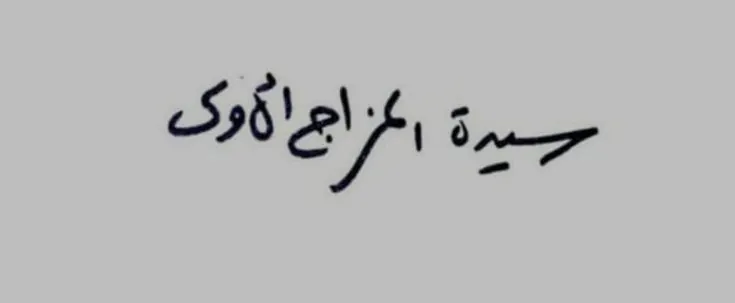 سيدة المزاج الأول